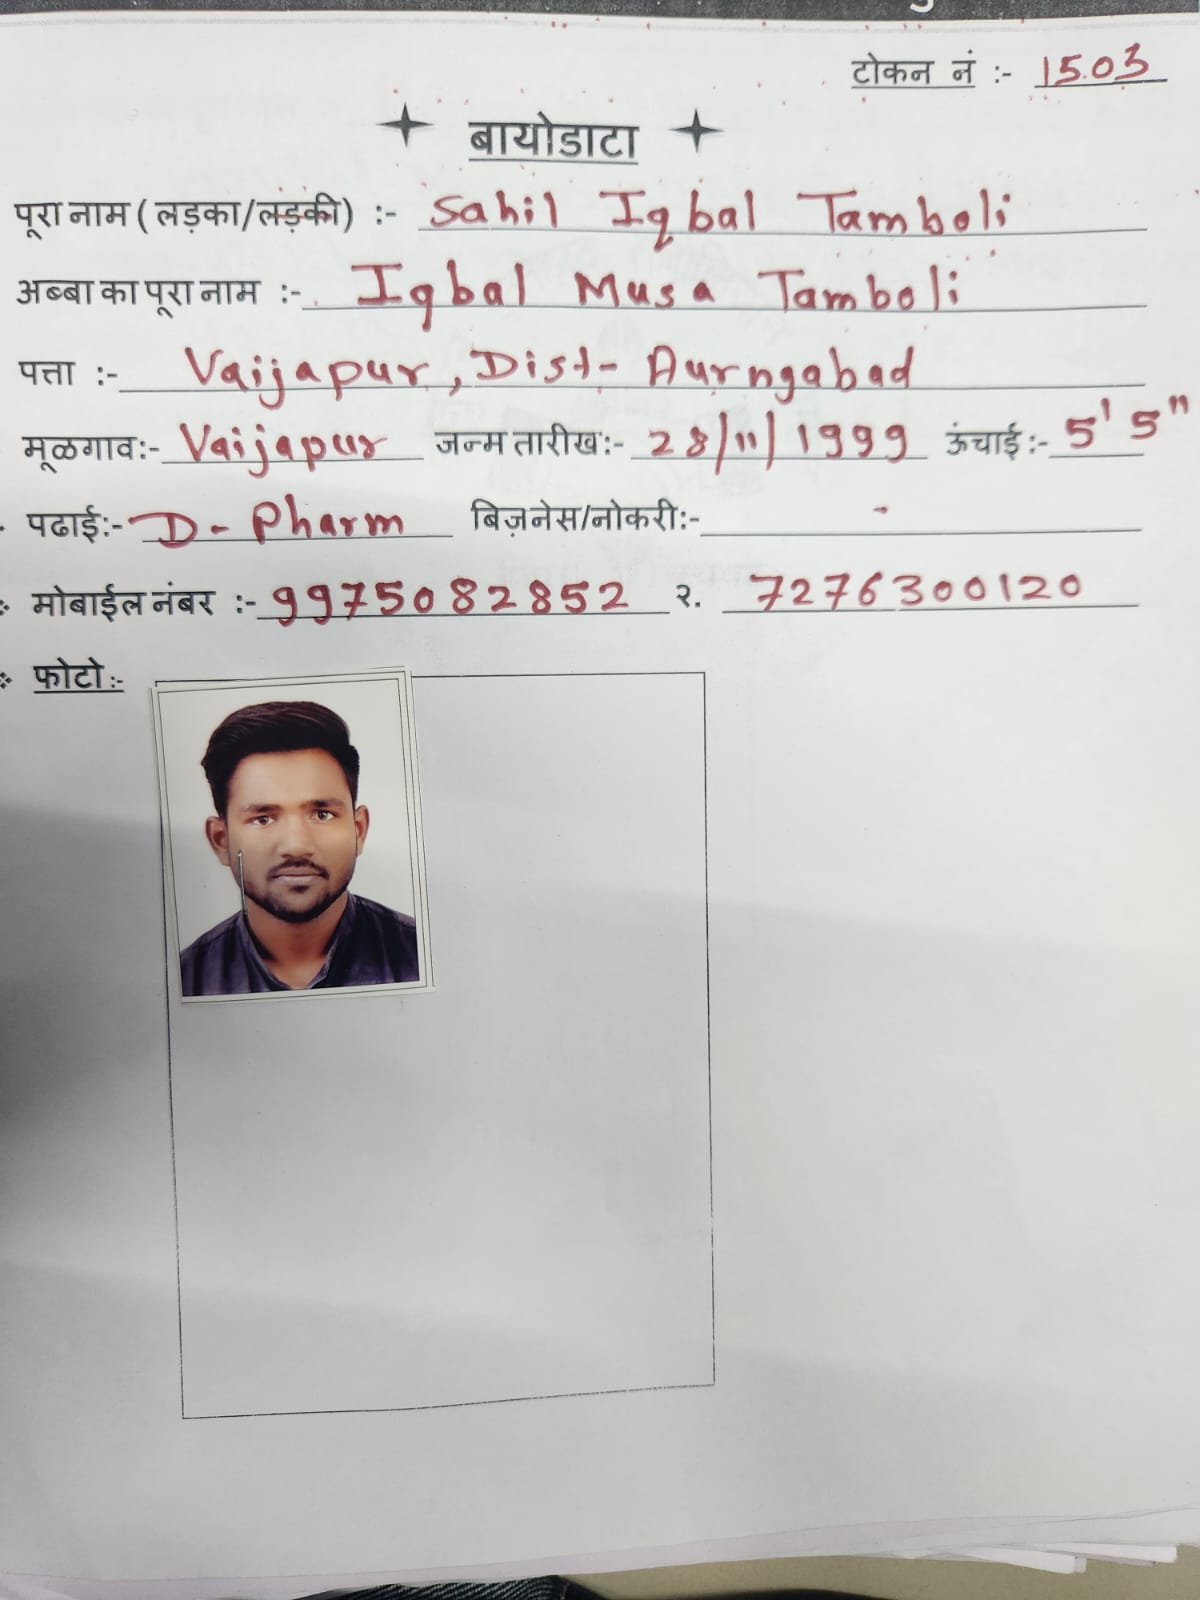 टोकन नं :- 1503
बायोडाटा
पूरा नाम ( लड़का/लड़की) :- Sahil Iqbal Tamboli
अब्बा का पूरा नाम :- Iqbal Musa Tamboli
पत्ता :- Vaijapur, Dist- Aurngabad
मूळगाव:- Vaijapur जन्म तारीख:- 28/11/1999 ऊंचाई:- 5' 5"
पढाई:- D- Pharm बिज़नेस/नोकरी:- -
मोबाईल नंबर :- 9975082852 २. 7276300120
फोटो :-